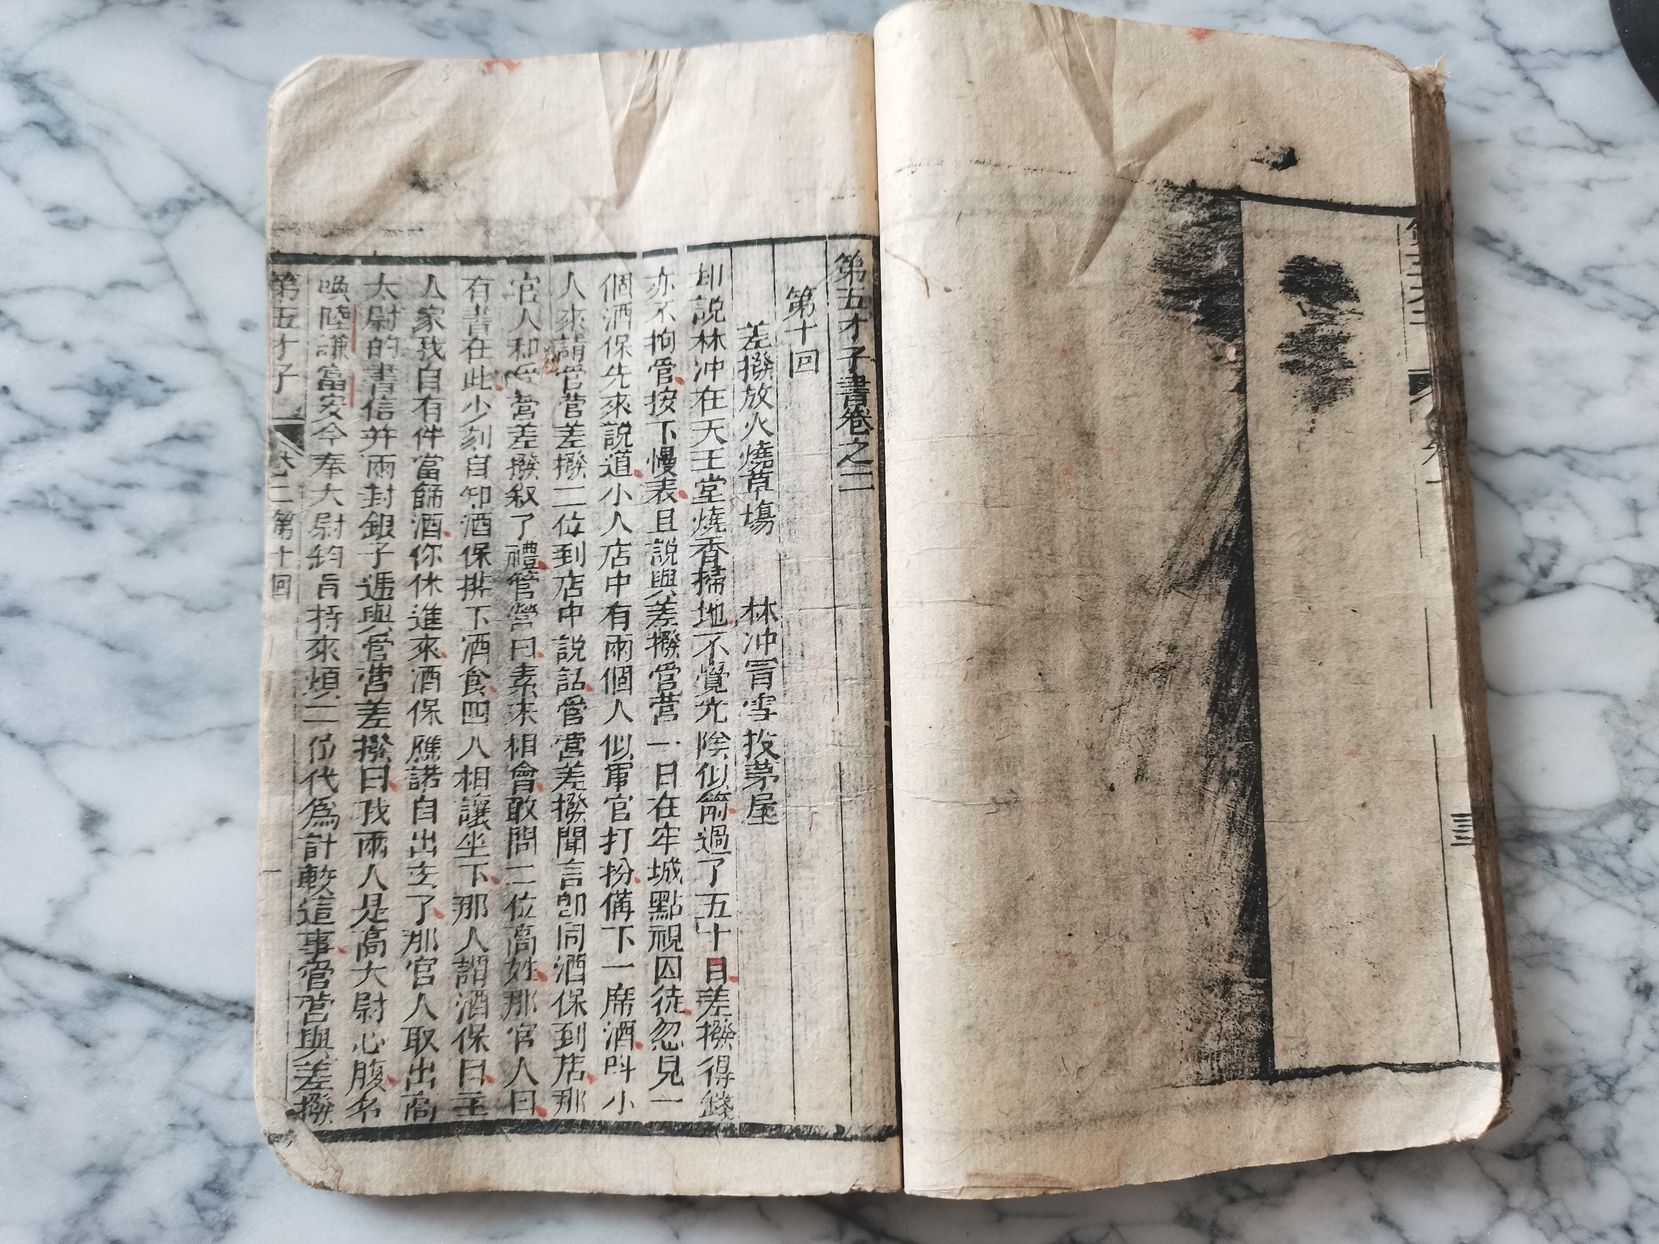 第五才子書卷之二
第十回
差撥放火燒草塲 林冲冐雪投茅屋
却說林冲在天王堂燒香掃地不覺光陰似箭過了五十日差撥得錢
亦不拘管按下慢表且說與差撥管营一日在牢城點視囚徒忽見一
個酒保先來說道小人店中有兩個人似軍官打扮備下一席酒呌小
人來請管营差撥二位到店中說話管营差撥聞言卽同酒保到店那
官人和管营差撥叙了禮管營曰素未相會敢問二位高姓那官人曰
有書在此少刻自知酒保排下酒食四人相讓坐下那人謂酒保曰主
人家我自有伴當篩酒你休進來酒保應諾自出去了那官人取出高
太尉的書信并兩封銀子遞與管营差撥曰我兩人是高大尉心腹名
喚陸謙富安今奉大尉鈞旨特來煩二位代為計較這事管营與差撥
第五才子 卷二 第十回 一
三